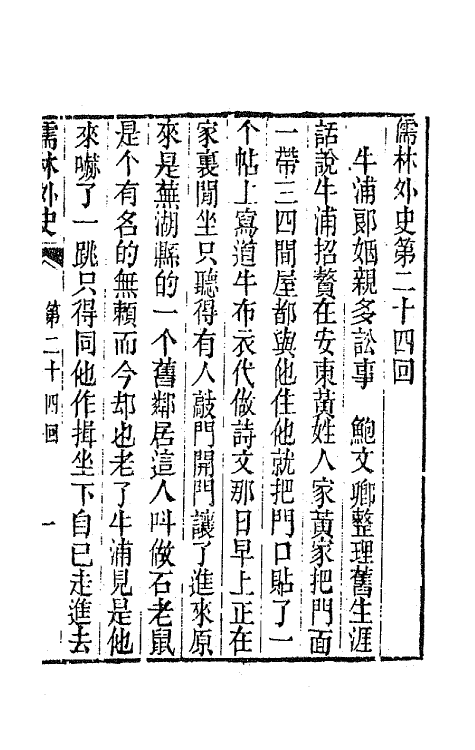 儒林外史第二十四回
牛浦郞姻親多訟事　鮑文卿整理舊生涯
話說牛浦招贅在安東黃姓人家黃家把門面
一帶三四間屋都與他住他就把門口貼了一
个帖上寫道牛布衣代做詩文那日早上正在
家裏閒坐只聽得有人敲門開門讓了進來原
來是蕪湖縣的一个舊鄰居這人叫做石老鼠
是个有名的無賴而今却也老了牛浦見是他
來嚇了一跳只得同他作揖坐下自己走進去
儒林外史　第二十四回　一